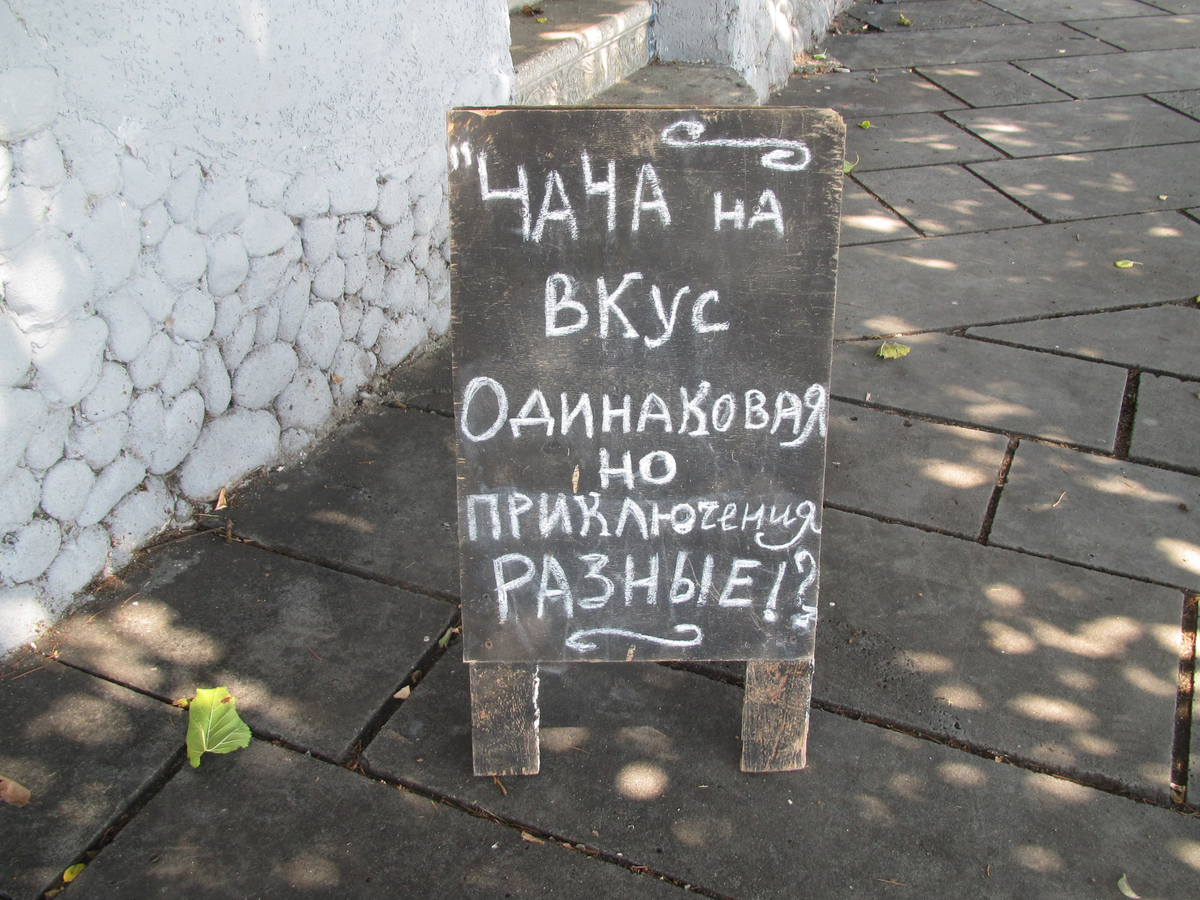 "ЧАЧА НА
ВКУС
ОДИНАКОВАЯ
НО
ПРИКЛЮЧЕНИЯ
РАЗНЫЕ!?